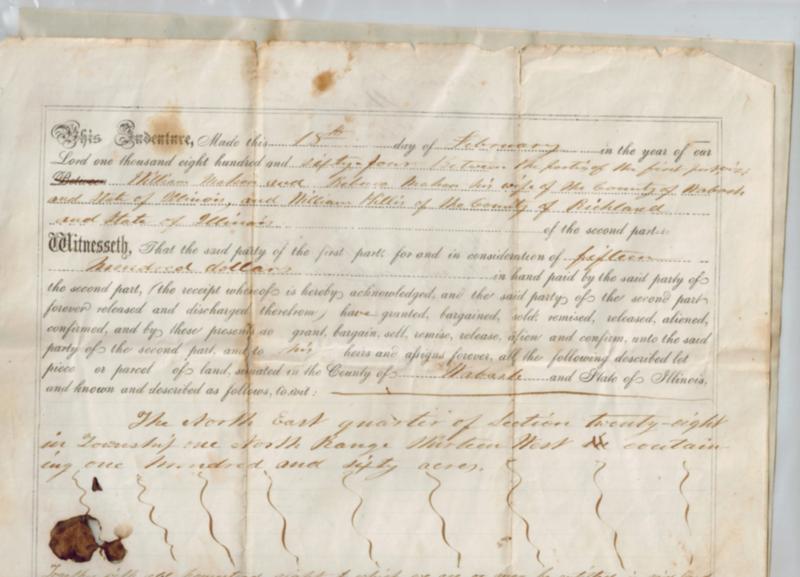 This Indenture, Made this 18th day of February in the year of our
Lord one thousand eight hundred and sixty-four between the party of the first part viz:
Between William Mahon and his wife of the County of Wabash
and State of Illinois, and William Phillis of the County of Richland
and State of Illinois of the second part:
Witnesseth, That the said party of the first part, for and in consideration of fifteen
hundred dollars in hand paid by the said party of
the second part, (the receipt whereof is hereby acknowledged, and the said party of the second part
forever released and discharged therefrom) have granted, bargained, sold, remised, released, aliened,
confirmed, and by these presents do grant, bargain, sell, remise, release, alien and confirm, unto the said
party of the second part, and to his heirs and assigns forever, all the following described lot
piece or parcel of land, situated in the County of Wabash and State of Illinois,
and known and described as follows, to wit:
The North East quarter of Section twenty-eight
in Township one North Range thirteen West contain-
ing one hundred and sixty acres.